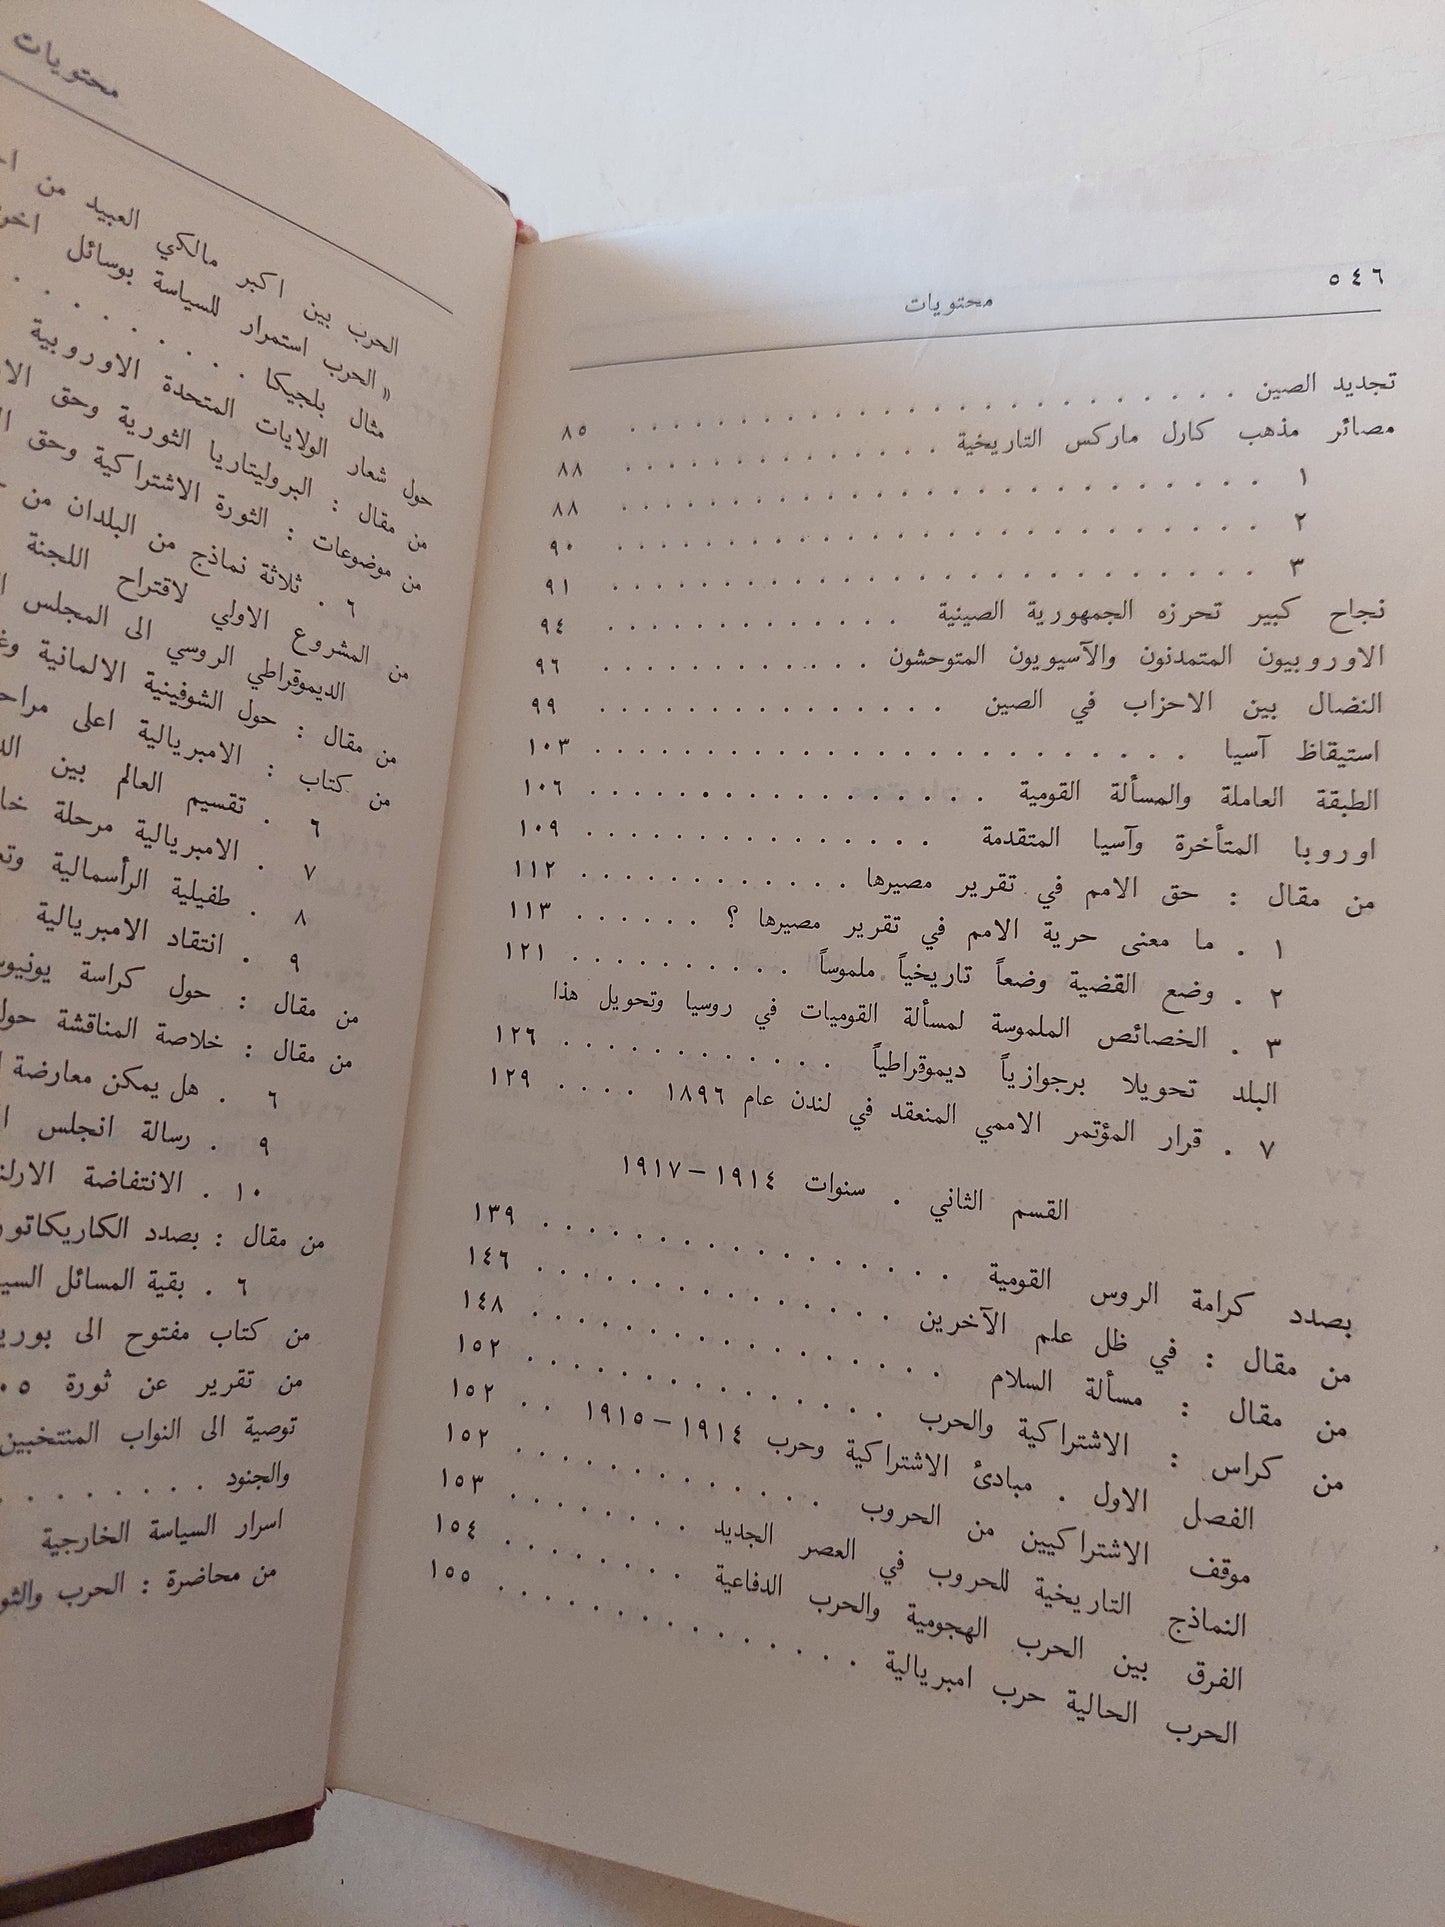 ٥٤٦
محتويات
تجديد الصين . . . . . . . . . . . . . . . . . . . ٨٥
مصائر مذهب كارل ماركس التاريخية . . . . . . . . . . . ٨٨
١ . . . . . . . . . . . . . . . . . . . . . . ٨٨
٢ . . . . . . . . . . . . . . . . . . . . . . ٩٠
٣ . . . . . . . . . . . . . . . . . . . . . . ٩١
نجاح كبير تحرزه الجمهورية الصينية . . . . . . . . . . . ٩٤
الاوروبيون المتمدنون والآسيويون المتوحشون . . . . . . . . . . ٩٦
النضال بين الاحزاب في الصين . . . . . . . . . . . . . ٩٩
استيقاظ آسيا . . . . . . . . . . . . . . . . . . . . ١٠٣
الطبقة العاملة والمسألة القومية . . . . . . . . . . . . . . ١٠٦
اوروبا المتأخرة وآسيا المتقدمة . . . . . . . . . . . . . ١٠٩
من مقال : حق الامم في تقرير مصيرها . . . . . . . . . . ١١٢
١ . ما معنى حرية الامم في تقرير مصيرها ؟ . . . . . . ١١٣
٢ . وضع القضية وضعاً تاريخياً ملموساً . . . . . . . . . ١٢١
٣ . الخصائص الملموسة لمسألة القوميات في روسيا وتحويل هذا
البلد تحويلا برجوازياً ديموقراطياً . . . . . . . . . . ١٢٦
٧ . قرار المؤتمر الاممي المنعقد في لندن عام ١٨٩٦ . . . . ١٢٩
القسم الثاني . سنوات ١٩١٤ – ١٩١٧
بصدد كرامة الروس القومية . . . . . . . . . . . . . . ١٣٩
من مقال : في ظل علم الآخرين . . . . . . . . . . . . ١٤٦
من مقال : مسألة السلام . . . . . . . . . . . . . . ١٤٨
من كراس : الاشتراكية والحرب . . . . . . . . . . . . ١٥٢
الفصل الاول . مبادئ الاشتراكية وحرب ١٩١٤ – ١٩١٥ . . ١٥٢
موقف الاشتراكيين من الحروب . . . . . . . . . . . ١٥٢
النماذج التاريخية للحروب في العصر الجديد . . . . . . ١٥٣
الفرق بين الحرب الهجومية والحرب الدفاعية . . . . . . . ١٥٤
الحرب الحالية حرب امبريالية . . . . . . . . . . . . ١٥٥
محتويات
الحرب بين اكبر مالكي العبيد من
« الحرب استمرار للسياسة بوسائل
مثال بلجيكا . . . . . . . .
حول شعار الولايات المتحدة الاوروبية
من مقال : البروليتاريا الثورية وحق
من موضوعات : الثورة الاشتراكية وحق
٦ . ثلاثة نماذج من البلدان من
من المشروع الاولي لاقتراح اللجنة
الديموقراطي الروسي الى المجلس
من مقال : حول الشوفينية الالمانية
من كتاب : الامبريالية اعلى
٦ . تقسيم العالم بين
٧ . الامبريالية مرحلة
٨ . طفيلية الرأسمالية
٩ . انتقاد الامبريالية
من مقال : حول كراسة
من مقال : خلاصة المناقشة حول
٦ . هل يمكن معارضة
٩ . رسالة انجلس
١٠ . الانتفاضة
من مقال : بصدد
٦ . بقية المسائل
من كتاب مفتوح الى
من تقرير عن ثورة
توصية الى النواب المنتخبين
والجنود . . . . . . . .
اسرار السياسة الخارجية
من محاضرة : الحرب